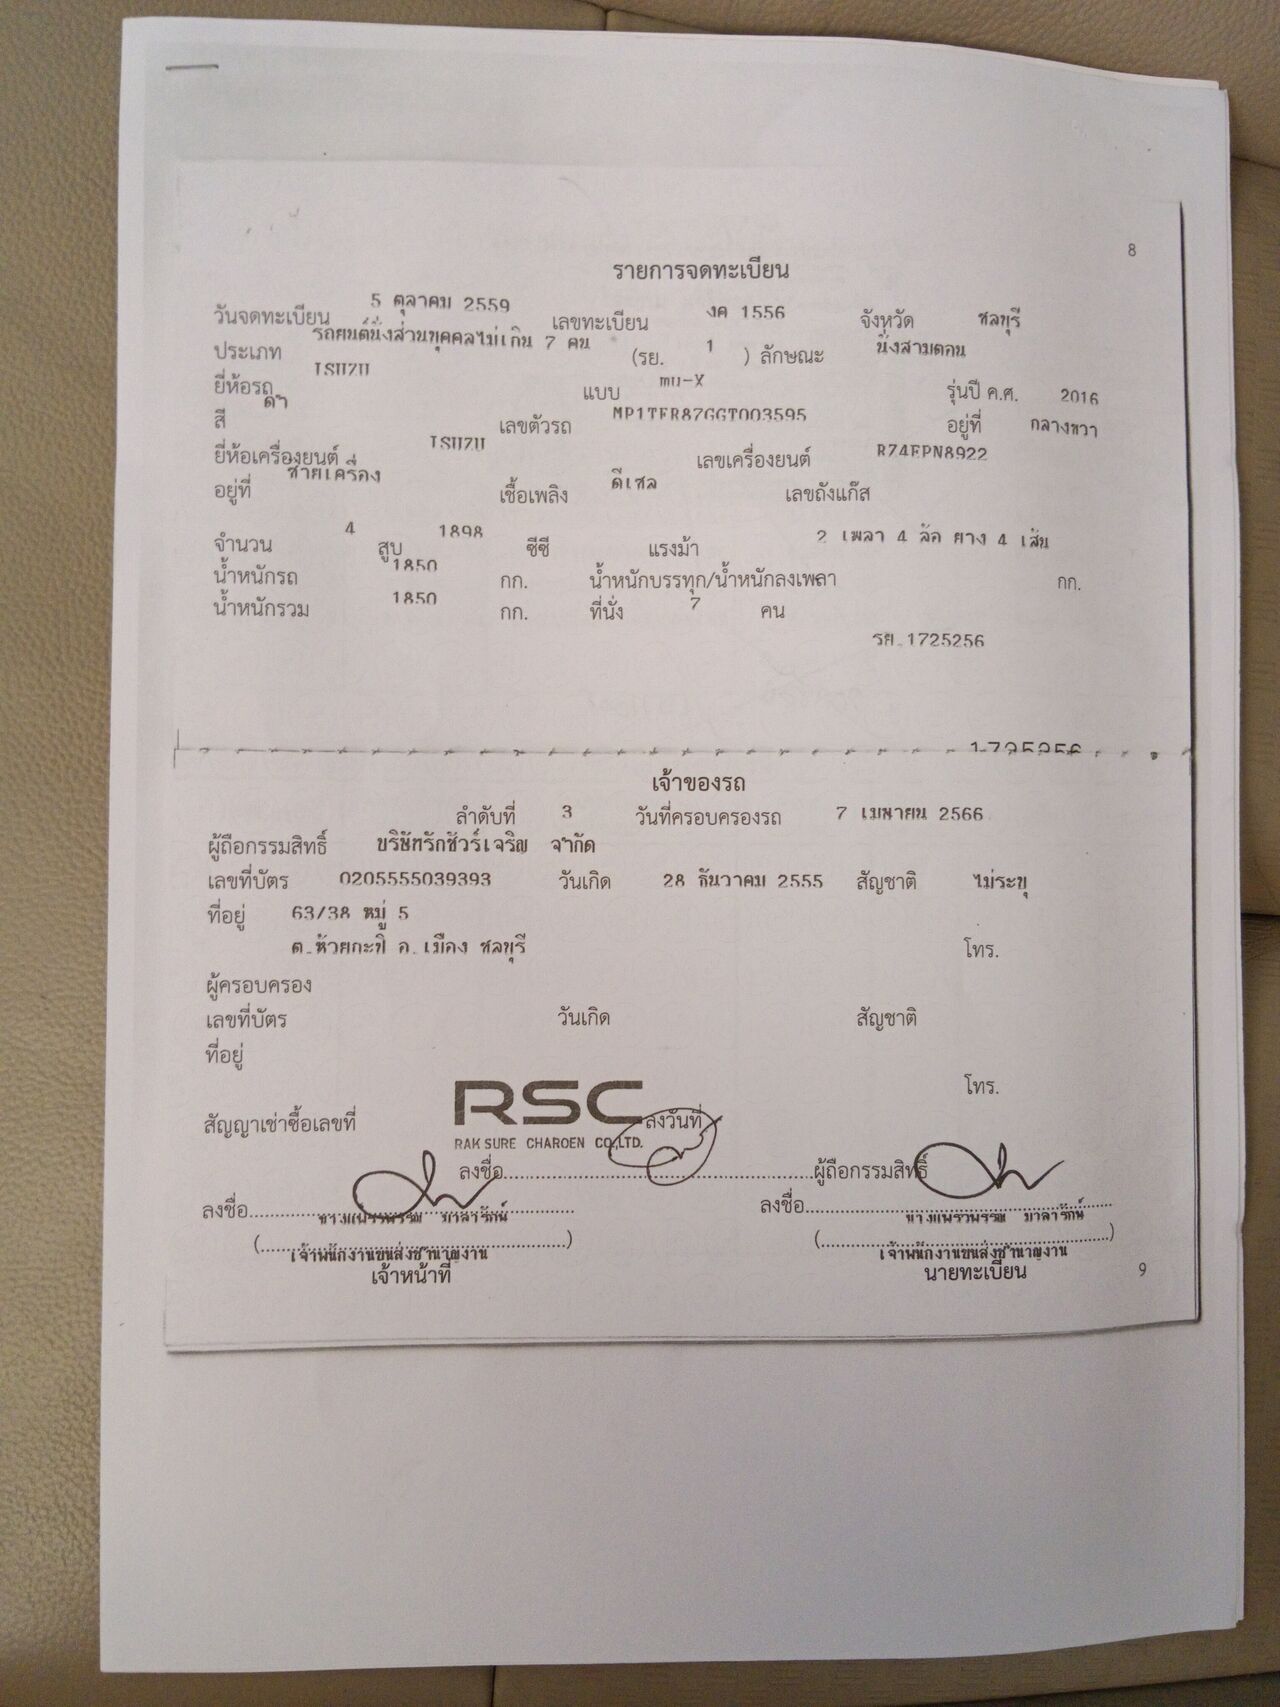 8
รายการจดทะเบียน
วันจดทะเบียน 5 ตุลาคม 2559 เลขทะเบียน งค 1556 จังหวัด ชลบุรี
ประเภท รถยนต์นั่งส่วนบุคคลไม่เกิน 7 คน (รย. 1 ) ลักษณะ นั่งสามตอน
ยี่ห้อรถ ISUZU แบบ mu-X รุ่นปี ค.ศ. 2016
สี ดำ เลขตัวรถ MP1TFR87GGT003595 อยู่ที่ กลางขวา
ยี่ห้อเครื่องยนต์ ISUZU เลขเครื่องยนต์ RZ4EPN8922
อยู่ที่ ซ้ายเครื่อง เชื้อเพลิง ดีเซล เลขถังแก๊ส
จำนวน 4 สูบ 1898 ซีซี แรงม้า 2 เพลา 4 ล้อ ยาง 4 เส้น
น้ำหนักรถ 1850 กก. น้ำหนักบรรทุก/น้ำหนักลงเพลา กก.
น้ำหนักรวม 1850 กก. ที่นั่ง 7 คน
รย.1725256
1725256
เจ้าของรถ
ลำดับที่ 3 วันที่ครอบครองรถ 7 เมษายน 2566
ผู้ถือกรรมสิทธิ์ บริษัทรักชัวร์เจริญ จำกัด
เลขที่บัตร 0205555039393 วันเกิด 28 ธันวาคม 2555 สัญชาติ ไม่ระบุ
ที่อยู่ 63/38 หมู่ 5
ต.ห้วยกะปิ อ.เมือง ชลบุรี โทร.
ผู้ครอบครอง
เลขที่บัตร วันเกิด สัญชาติ
ที่อยู่
โทร.
RSC
สัญญาเช่าซื้อเลขที่ ลงวันที่
RAK SURE CHAROEN CO.,LTD.
ลงชื่อ ผู้ถือกรรมสิทธิ์
ลงชื่อ ลงชื่อ
นางแพรวพรรณ มาลารักษ์ นางแพรวพรรณ มาลารักษ์
(เจ้าพนักงานขนส่งชำนาญงาน) (เจ้าพนักงานขนส่งชำนาญงาน)
เจ้าหน้าที่ นายทะเบียน
9